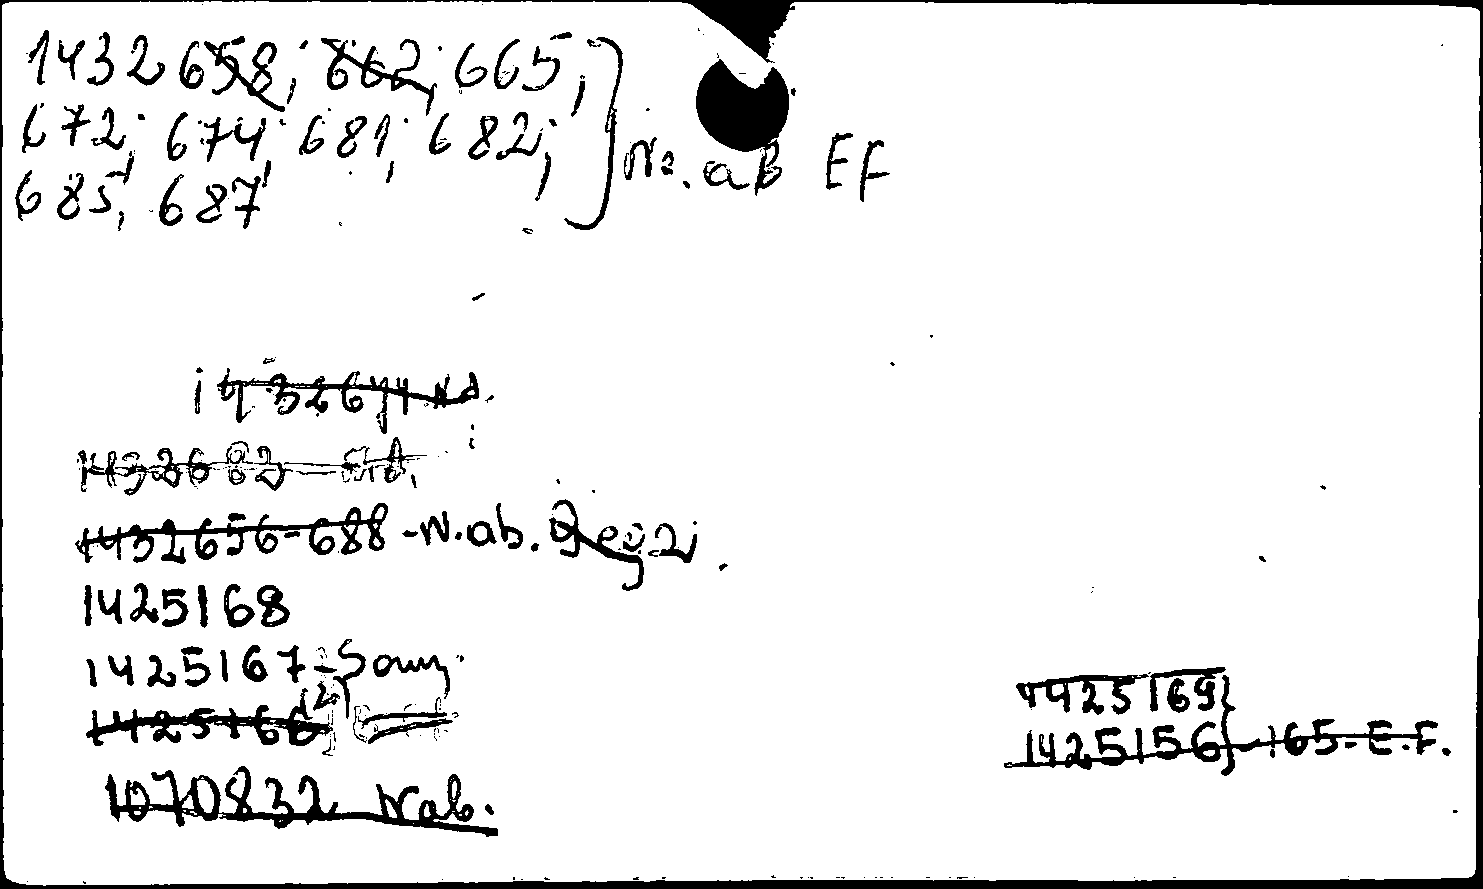 1432658; 662; 665;
672; 674; 681; 682;
685; 687
Nr. aB EF
1432674 Nd.
1432682
1432656-688-N.ab.
1425168
1425167-
1425166 (2)
1070832 Nab.
1425169}
1425156}-165-E.F.